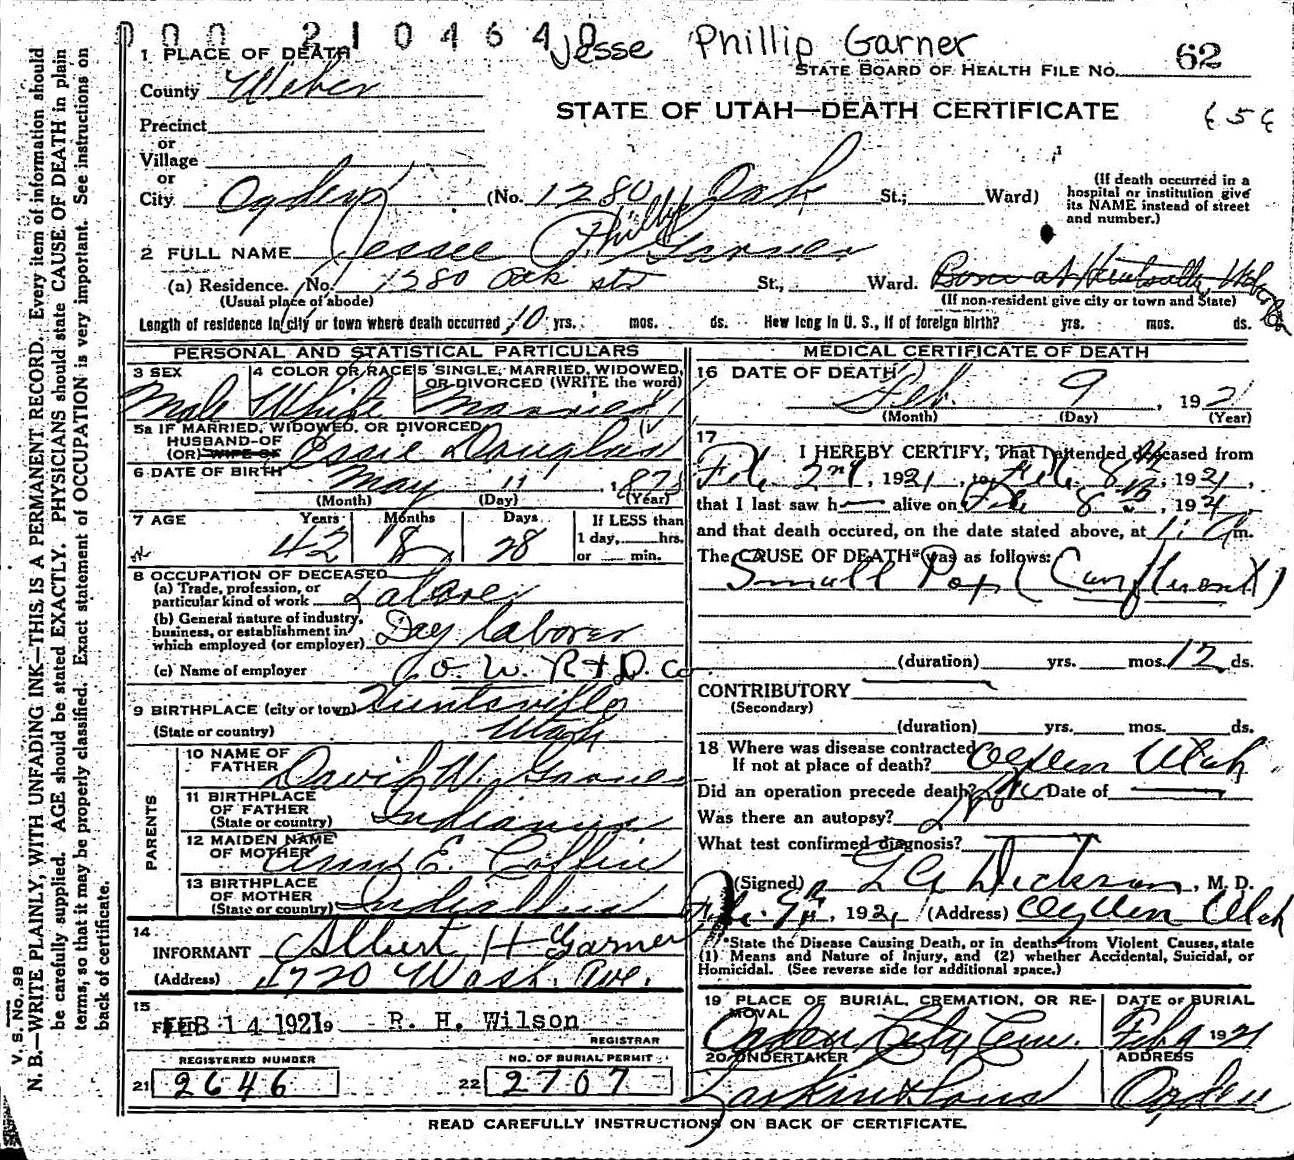 000 210464 0 Jesse Phillip Garner
1 PLACE OF DEATH
STATE BOARD OF HEALTH FILE NO. 62
County Weber
STATE OF UTAH—DEATH CERTIFICATE
Precinct
or
Village
or
City Ogden (No. 1280 Oak St.; Ward)
(If death occurred in a
hospital or institution give
its NAME instead of street
and number.)
2 FULL NAME Jessee Phillip Garner
(a) Residence. No. 1280 Oak str St., Ward. Born at Huntsville, Weber Co
(Usual place of abode)
(If non-resident give city or town and State)
Length of residence in city or town where death occurred 10 yrs. mos. ds. How long in U. S., if of foreign birth? yrs. mos. ds.
PERSONAL AND STATISTICAL PARTICULARS
3 SEX Male
4 COLOR OR RACE White
5 SINGLE, MARRIED, WIDOWED, OR DIVORCED (WRITE the word) Married
5a IF MARRIED, WIDOWED, OR DIVORCED
HUSBAND OF
(OR) WIFE OF Ossie Douglas
6 DATE OF BIRTH May 11, 1878
(Month) (Day) (Year)
7 AGE Years Months Days
42 8 28
If LESS than
1 day, hrs.
or min.
8 OCCUPATION OF DECEASED
(a) Trade, profession, or
particular kind of work Laborer
(b) General nature of industry,
business, or establishment in
which employed (or employer) Day laborer
(c) Name of employer O. W. R & D. Co
9 BIRTHPLACE (city or town) Huntsville
(State or country) Utah
PARENTS
10 NAME OF
FATHER David W. Garner
11 BIRTHPLACE
OF FATHER
(State or country) Indiana
12 MAIDEN NAME
OF MOTHER E. Coffin
13 BIRTHPLACE
OF MOTHER
(State or country)
14
INFORMANT Albert H Garner
(Address) 1720 Wash. Ave.
15
FILED FEB 14 1921 9 R. H. Wilson
REGISTRAR
REGISTERED NUMBER
21 2646
NO. OF BURIAL PERMIT
22 2707
MEDICAL CERTIFICATE OF DEATH
16 DATE OF DEATH
Feb. 9, 1921
(Month) (Day) (Year)
17
I HEREBY CERTIFY, That I attended deceased from
Feb. 2nd, 1921, to Feb. 8th, 1921,
that I last saw h alive on Feb 8th, 1921,
and that death occured, on the date stated above, at 1: A m.
The CAUSE OF DEATH* was as follows:
Small Pox (Confluent)
(duration) yrs. mos. 12 ds.
CONTRIBUTORY
(Secondary)
(duration) yrs. mos. ds.
18 Where was disease contracted
If not at place of death? Ogden Utah
Did an operation precede death? No Date of
Was there an autopsy?
What test confirmed diagnosis?
(Signed) Dickson, M. D.
Feb. 9th, 1921 (Address) Ogden Utah
*State the Disease Causing Death, or in deaths from Violent Causes, state
(1) Means and Nature of Injury, and (2) whether Accidental, Suicidal, or
Homicidal. (See reverse side for additional space.)
19 PLACE OF BURIAL, CREMATION, OR RE-
MOVAL
Ogden City Cem.
DATE OF BURIAL
Feb 9 1921
20 UNDERTAKER
Larkin & Sons
ADDRESS
Ogden
READ CAREFULLY INSTRUCTIONS ON BACK OF CERTIFICATE.
V. S. No. 98
N. B.—WRITE PLAINLY, WITH UNFADING INK—THIS IS A PERMANENT RECORD. Every item of information should
be carefully supplied. AGE should be stated EXACTLY. PHYSICIANS should state CAUSE OF DEATH in plain
terms, so that it may be properly classified. Exact statement of OCCUPATION is very important. See instructions on
back of certificate.